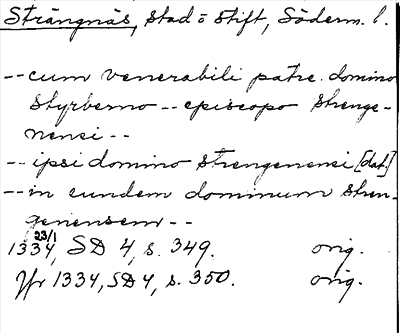 Strängnäs, stad o stift, Söderm. l.
-- cum venerabili patre domino
Styrberno -- episcopo Strenge-
nensi --
-- ipsi domino Strengenensi [dat.]
-- in eundem dominum Stren-
genensem --
23/1
1334, SD 4, s. 349. orig.
Yfr 1334, SD 4, s. 350. orig.